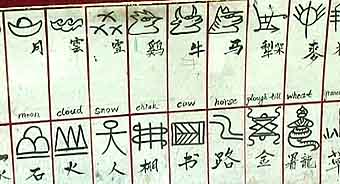 月 雲 雪 鷄 牛 马 犁 麥
moon cloud snow chick cow horse plough-till wheat
石 火 人 棚 书 路 金 龍